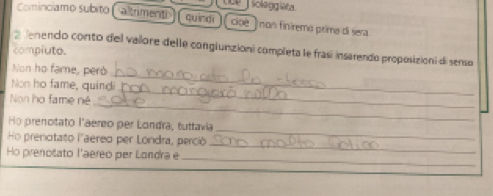 cioè soleggiata.
Cominciamo subito altrimenti quindi cioè non finiremo prima di sera.
2 Tenendo conto del valore delle congiunzioni completa le frasi inserendo proposizioni di senso
compiuto.
Non ho fame, però ho
Non ho fame, quindi non mangerò nulla
Non ho fame né
Ho prenotato l'aereo per Londra, tuttavia
Ho prenotato l'aereo per Londra, perciò sono molto
Ho prenotato l'aereo per Londra e